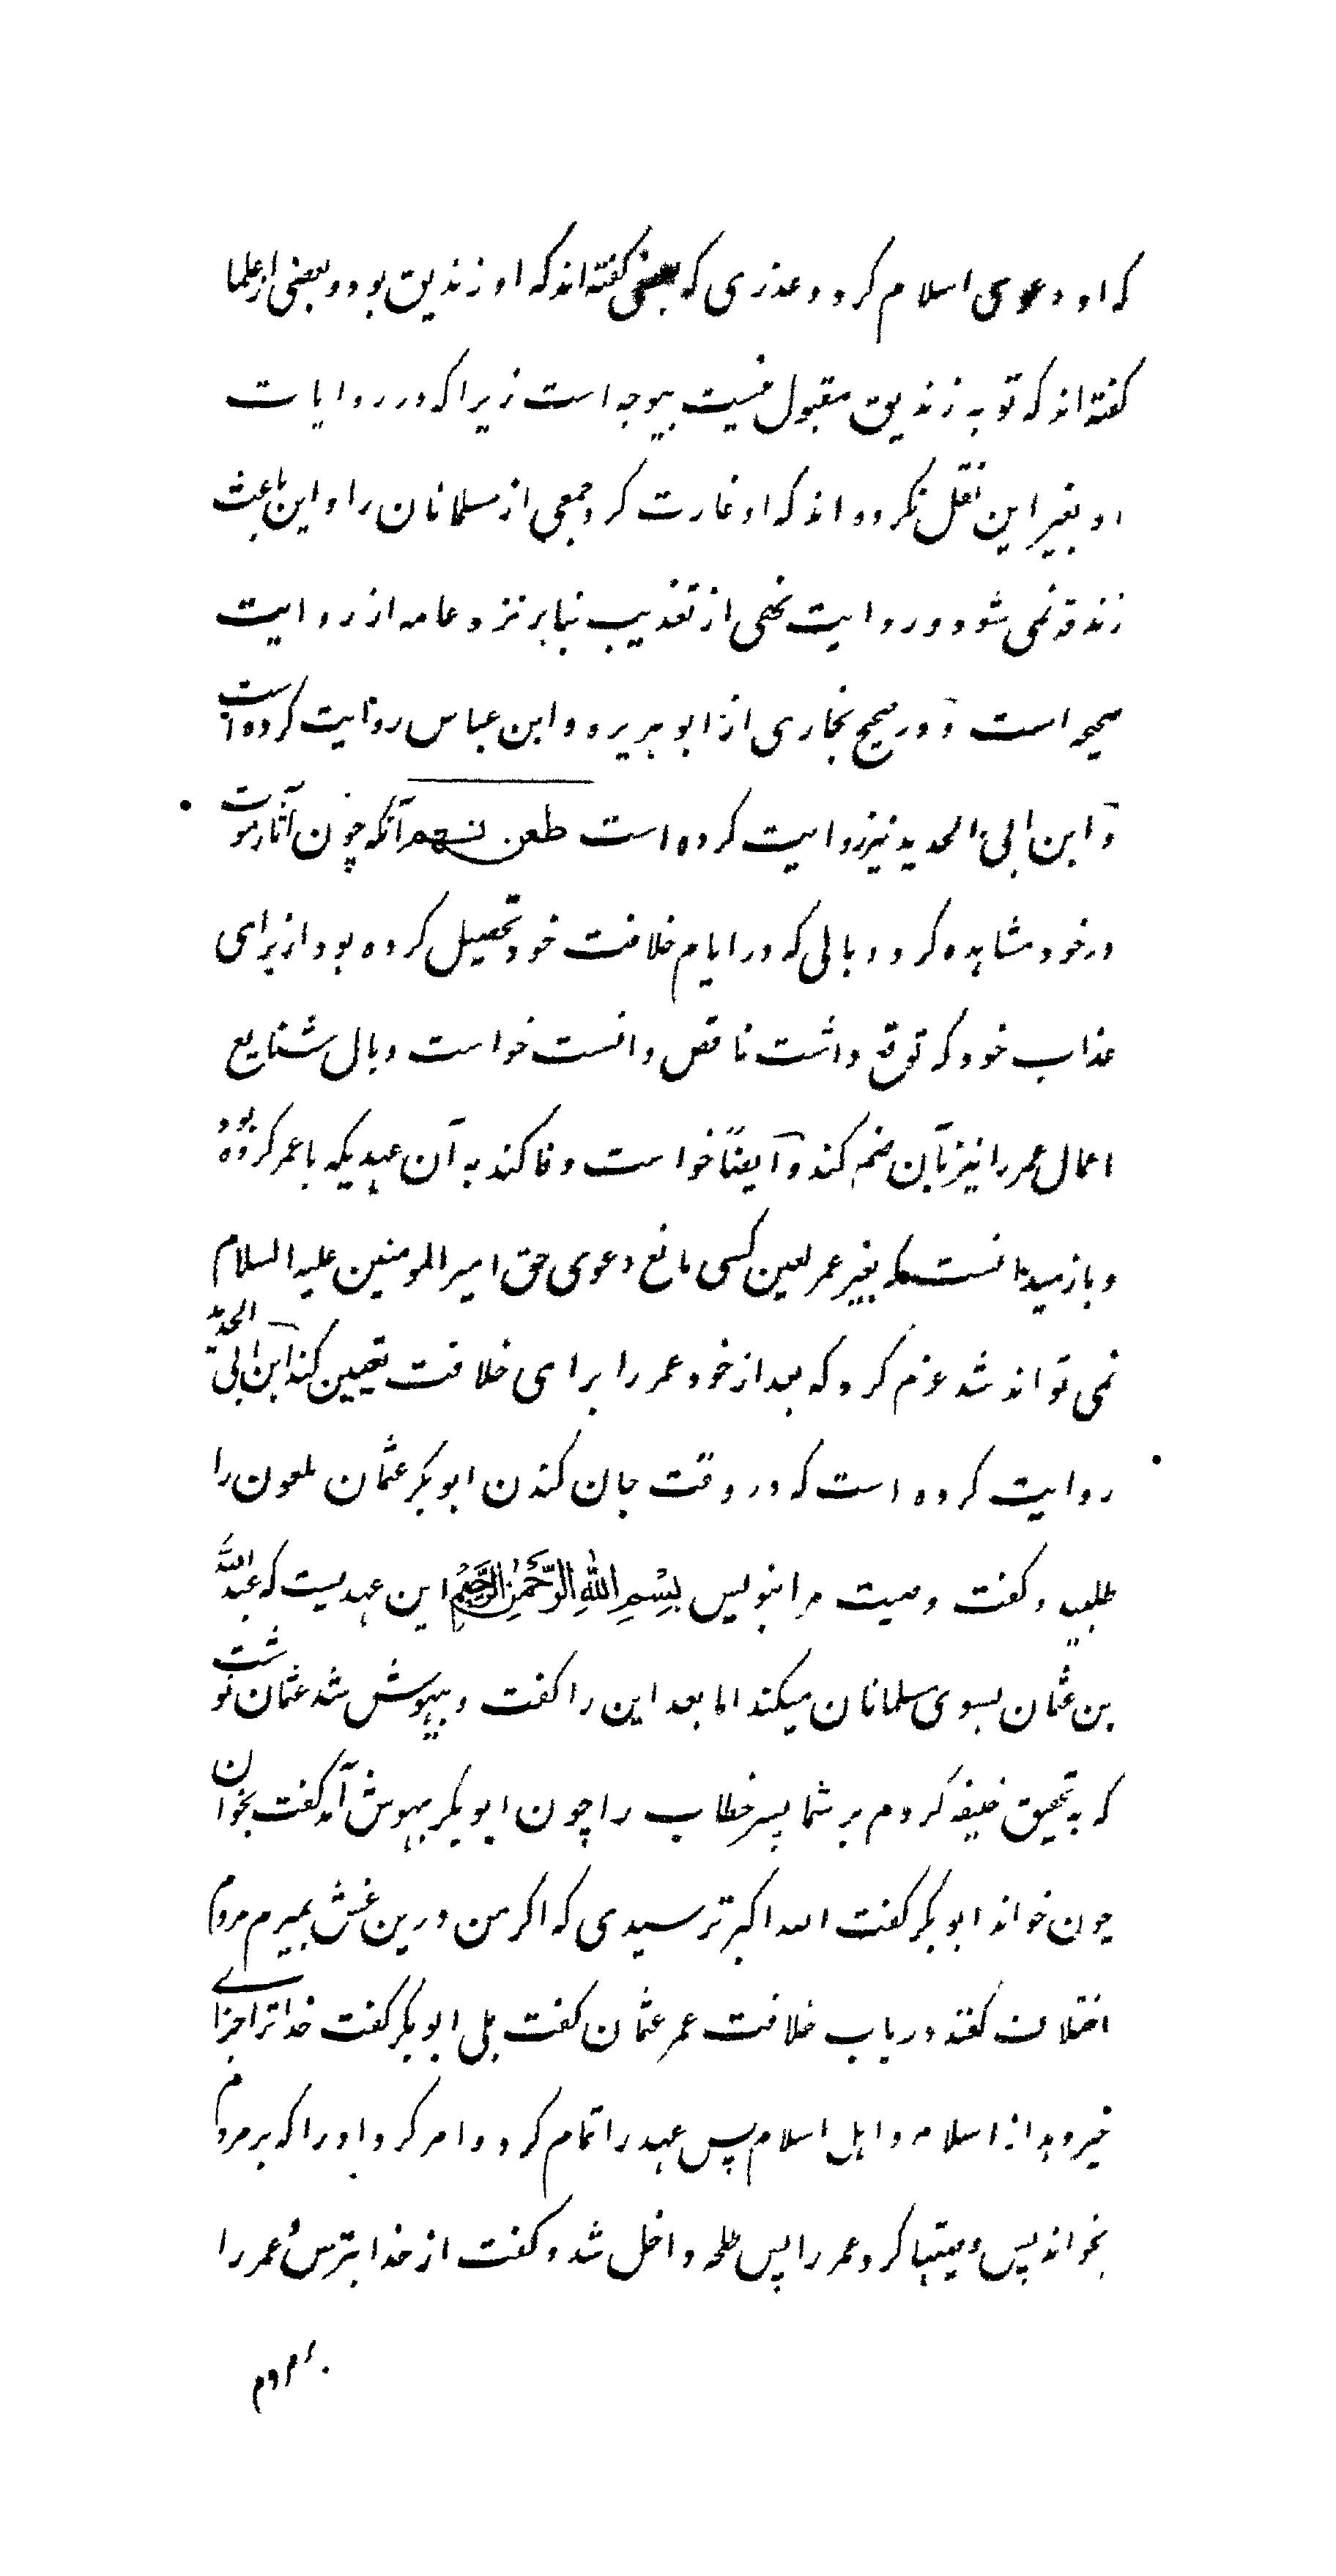 که او دعوی اسلام کرد و عذری که بعضی گفته‌اند که او زندیق بود و بعضی از علما
گفته‌اند که توبه زندیق مقبول نیست بیوجه است زیرا که در روایات
او بغیر این نقل نکرده‌اند که او غارت کرد جمعی از مسلمانان را و این باعث
زندقه نمی شود و روایت نهی از تعذیب بنابر نزد عامه از روایت
صحیحه است و در صحیح بخاری از ابو هریره و ابن عباس روایت کرده است
و ابن ابی الحدید نیز روایت کرده است طعن نهم آنکه چون آثار موت
در خود مشاهده کرد و وبالی که در ایام خلافت خود تحصیل کرده بود از برای
عذاب خود که توقع داشت ناقص دانست خواست وبال شنایع
اعمال عمر را نیز بآن ضم کند و ایضاً خواست وفا کند به آن عهدیکه با عمر کرده بود
و باز میدانست که بغیر عمر لعین کسی مانع دعوی حق امیر المومنین علیه السلام
نمی تواند شد عزم کرد که بعد از خود عمر را برای خلافت تعیین کند ابن ابی الحدید
روایت کرده است که در وقت جان کندن ابوبکر عثمان ملعون را
طلبید و گفت وصیت مرا بنویس بِسْمِ اللهِ الرَّحْمٰنِ الرَّحِیْمِ این عهدیست که عبد الله
بن عثمان بسوی مسلمانان میکند اما بعد این را گفت و بیهوش شد عثمان نوشت
که به تحقیق خلیفه کردم بر شما پسر خطاب را چون ابوبکر بهوش آمد گفت بخوان
چون خواند ابوبکر گفت الله اکبر ترسیدی که اگر من درین غش بمیرم مردم
اختلاف کنند در باب خلافت عمر عثمان گفت بلی ابوبکر گفت خدا ترا جزای
خیر دهد از اسلام و اهل اسلام پس عهد را تمام کرد و امر کرد او را که بر مردم
بخواند پس وصیتها کرد عمر را پس طلحه داخل شد و گفت از خدا بترس عمر را
مردم